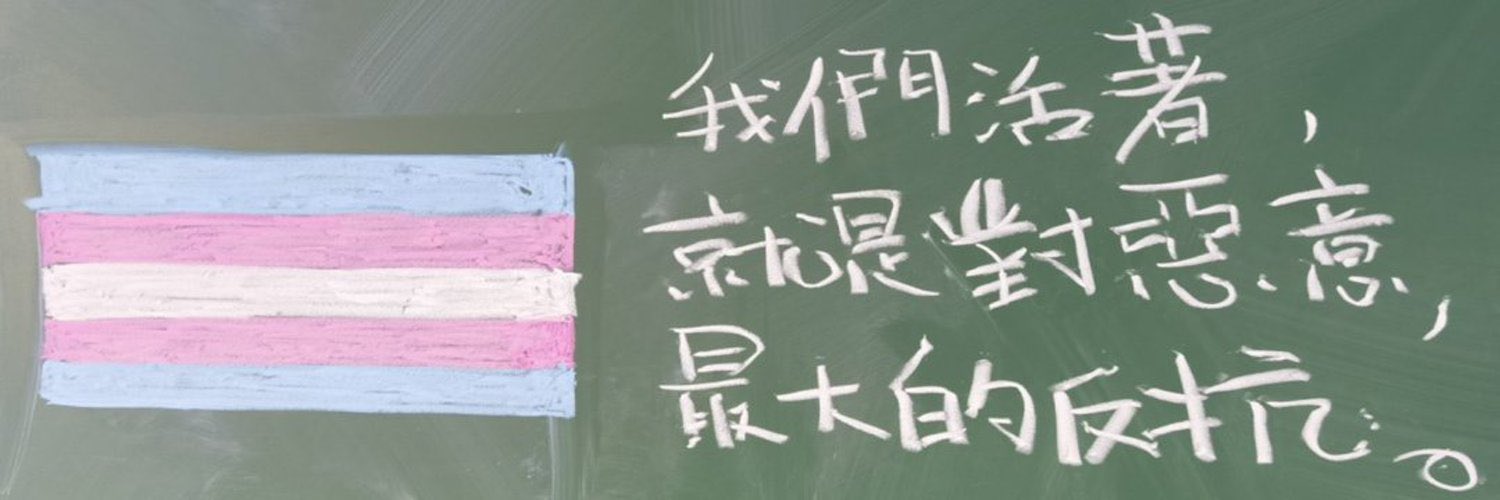 我們活著,
就是對惡意,
最大的反抗。